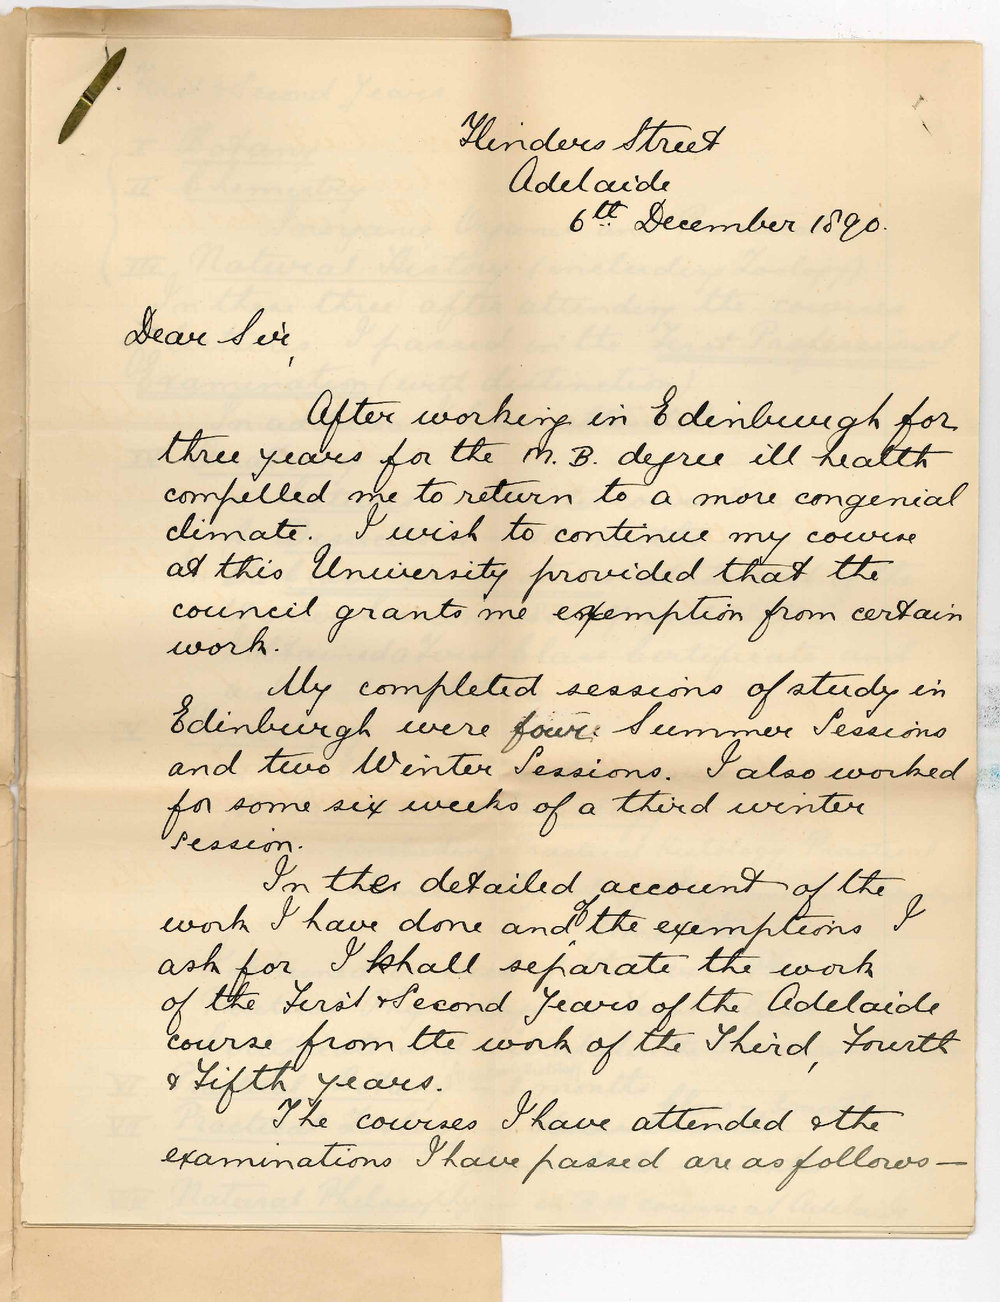 Flinders Street
Adelaide
6th December 1890.
Dear Sir,
After working in Edinburgh for
three years for the M.B. degree ill health
compelled me to return to a more congenial
climate. I wish to continue my course
at this University provided that the
council grants me exemption from certain
work.
My completed sessions of study in
Edinburgh were four: Summer Sessions
and two Winter Sessions. I also worked
for some six weeks of a third winter
session.
In the detailed account of the
work I have done and of the exemptions I
ask for I shall separate the work
of the First & Second Years of the Adelaide
course from the work of the Third, Fourth
& Fifth years.
The courses I have attended & the
examinations I have passed are as follows—